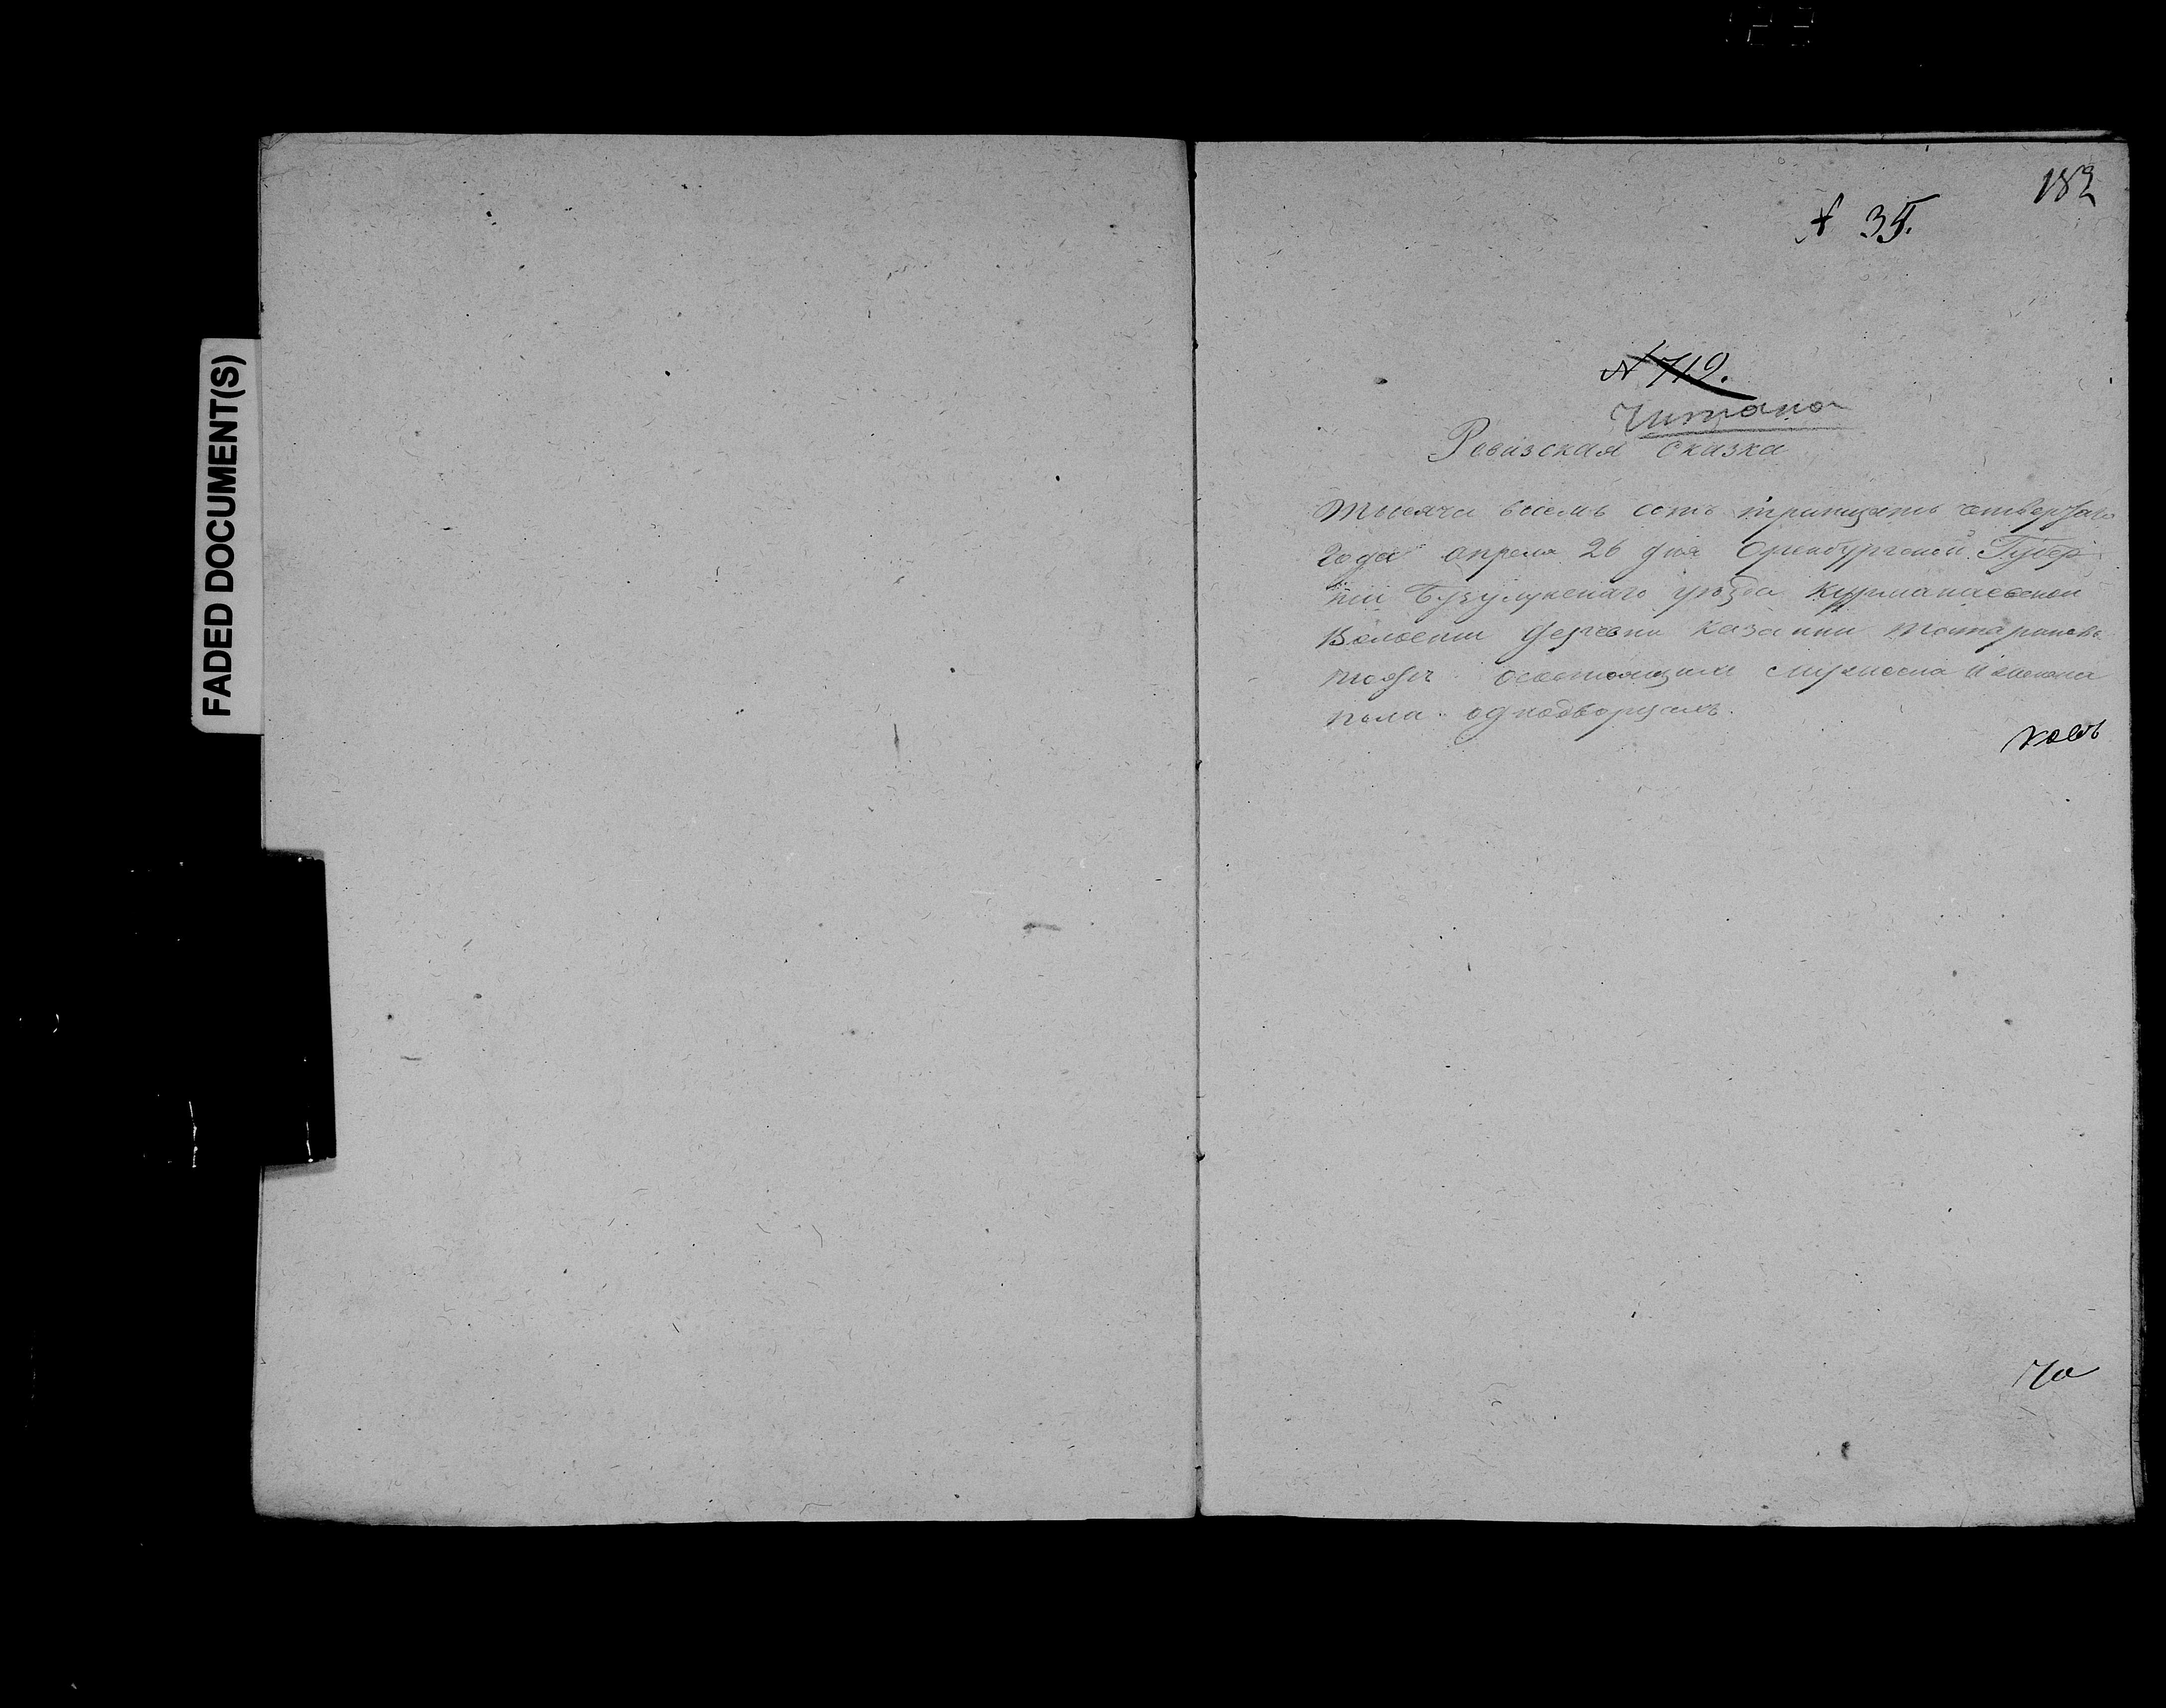 FADED DOCUMENT(S)
182
№ 35.
№ 719.
Читано
Ревизская сказка
тысяча восемь сотъ тритцать четвертаго
года апреля 26 дня Оренбургской Губер
нии Бузулукскаго уезда Курманаевской
Волости деревни казанки
состоящимъ мужеска и женска
пола однодворцамъ.
ковъ